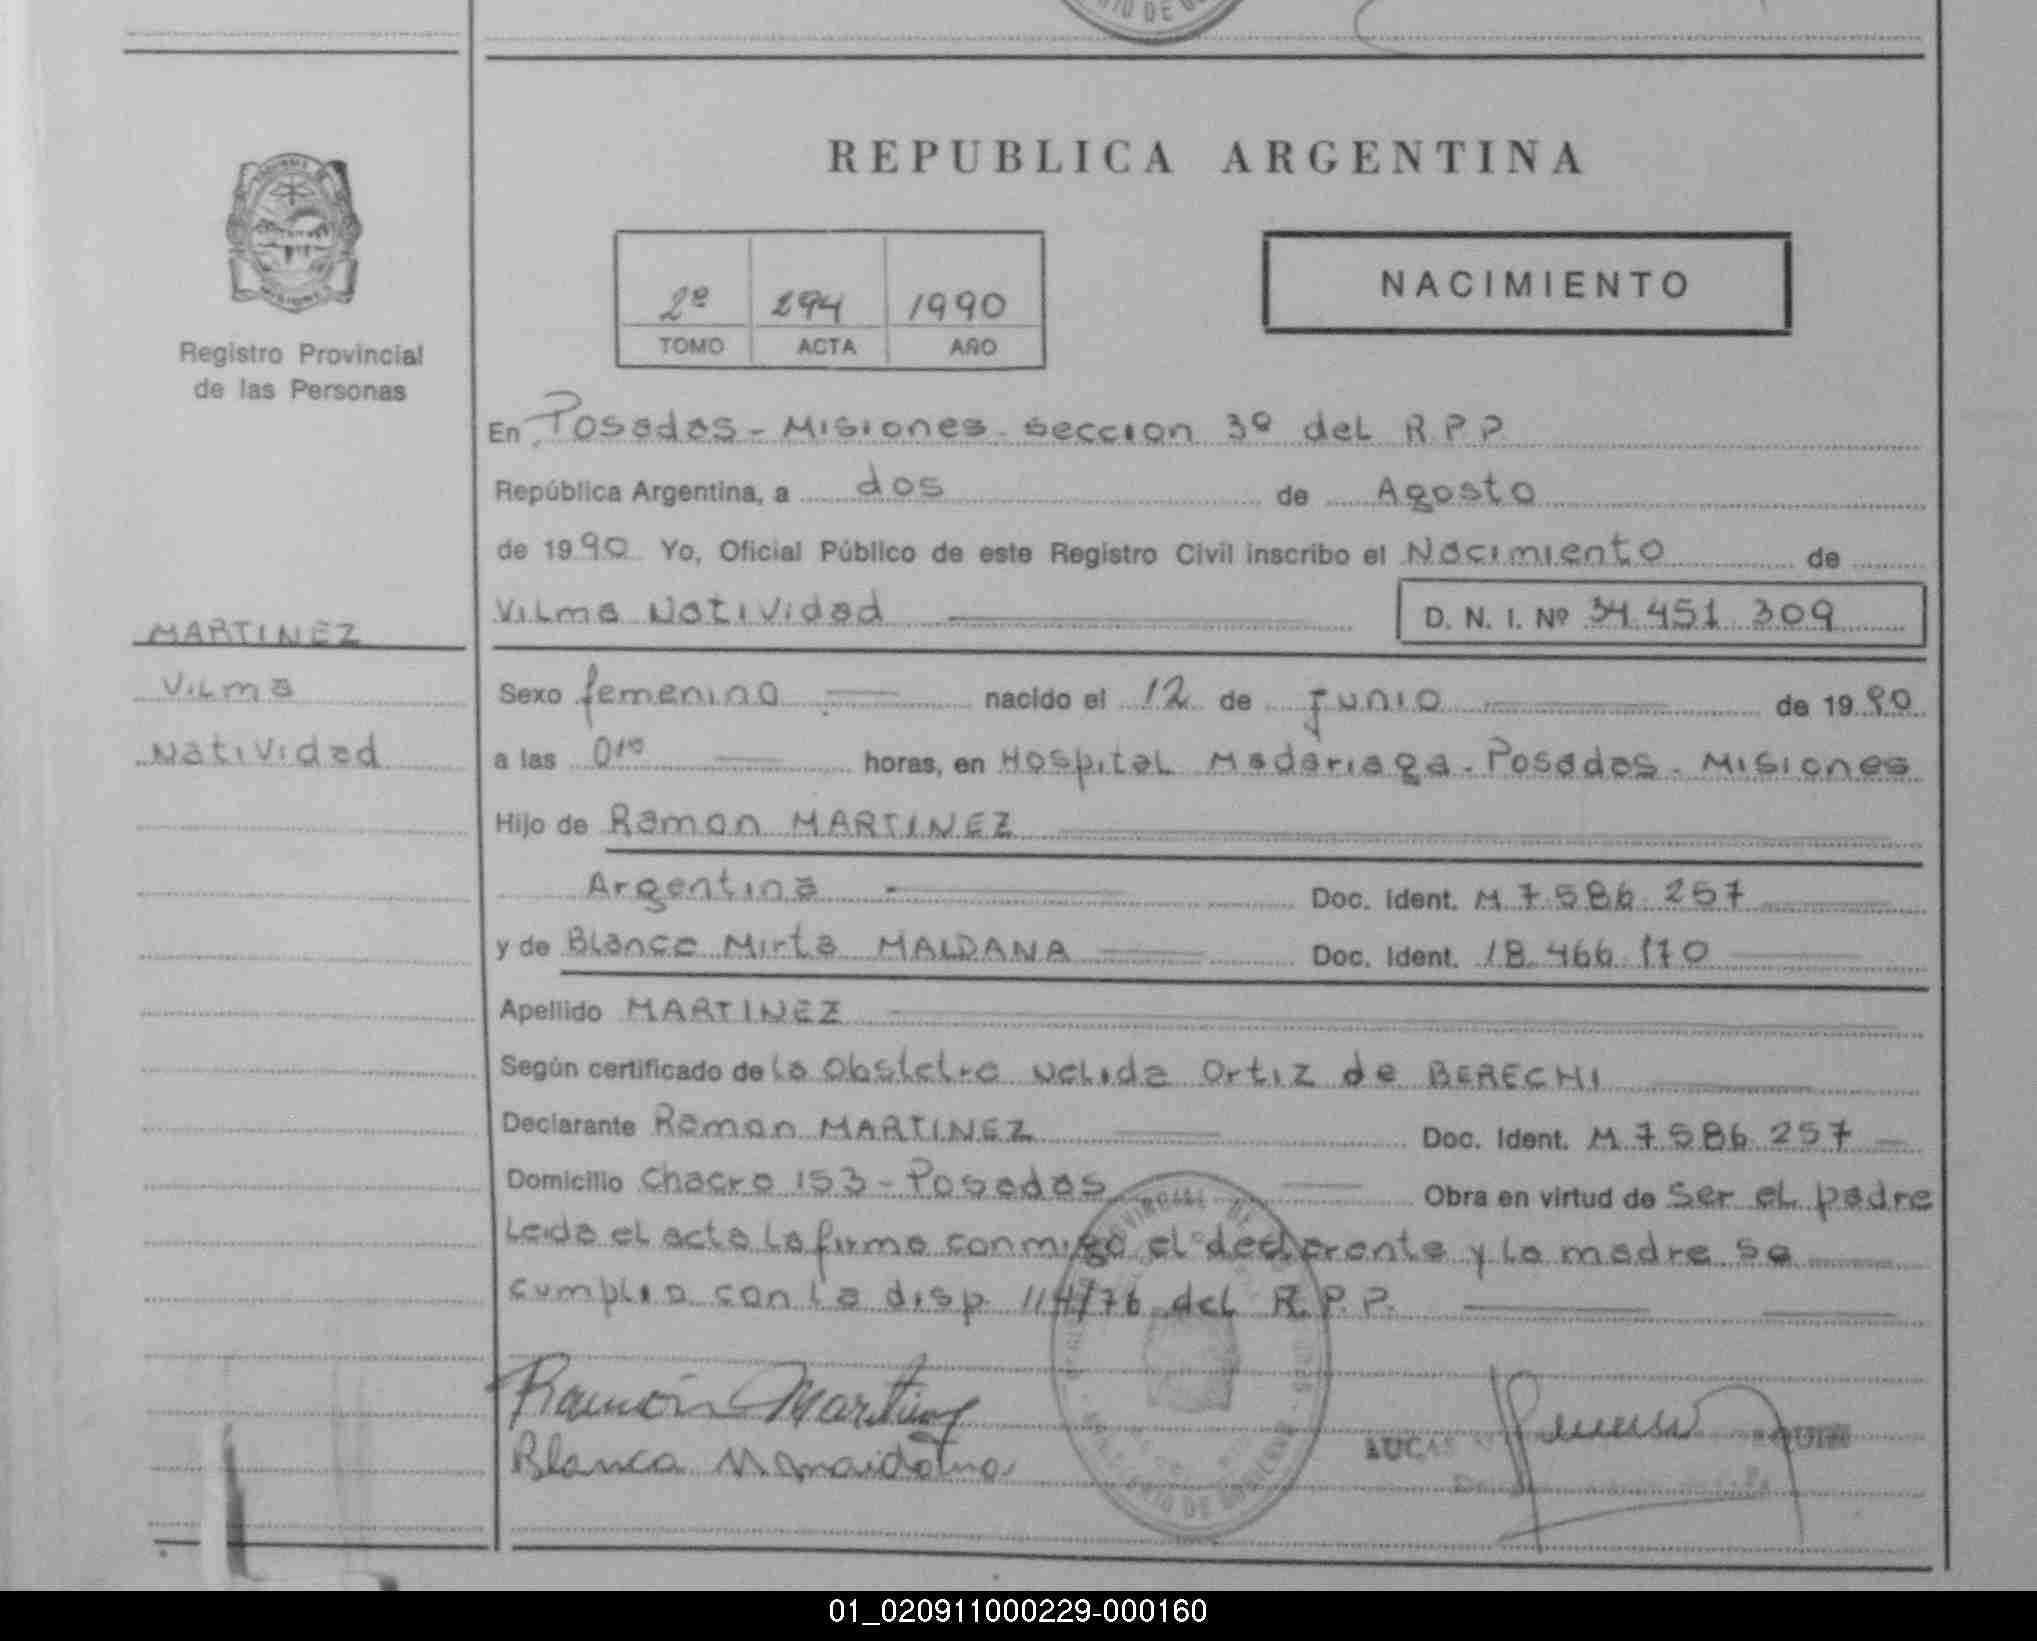 REPUBLICA ARGENTINA
2º 294 1990
TOMO ACTA AÑO
NACIMIENTO
Registro Provincial
de las Personas
En Posadas - Misiones seccion 3º del R.P.P
República Argentina, a dos de Agosto
de 1990 Yo, Oficial Público de este Registro Civil inscribo el Nacimiento de
Vilma Natividad D. N. I. Nº 34.451.309
MARTINEZ
Vilma
Natividad
Sexo femenino nacido el 12 de junio de 1990
a las 0¹⁰ horas, en Hospital Madariaga - Posadas - Misiones
Hijo de Ramon MARTINEZ
Argentina Doc. Ident. M 7.586.257
y de Blanca Mirta MALDANA Doc. Ident. 18.466.170
Apellido MARTINEZ
Según certificado de la Obstetra Nelida Ortiz de BERECHI
Declarante Ramon MARTINEZ Doc. Ident. M 7.586.257
Domicilio Chacra 153 - Posadas Obra en virtud de ser el padre
Leida el acta la firma conmigo el declarante y la madre se
cumplio con la disp. 114/76 del R.P.P.
Ramón Martinez
Blanca M
LUCAS
01_020911000229-000160